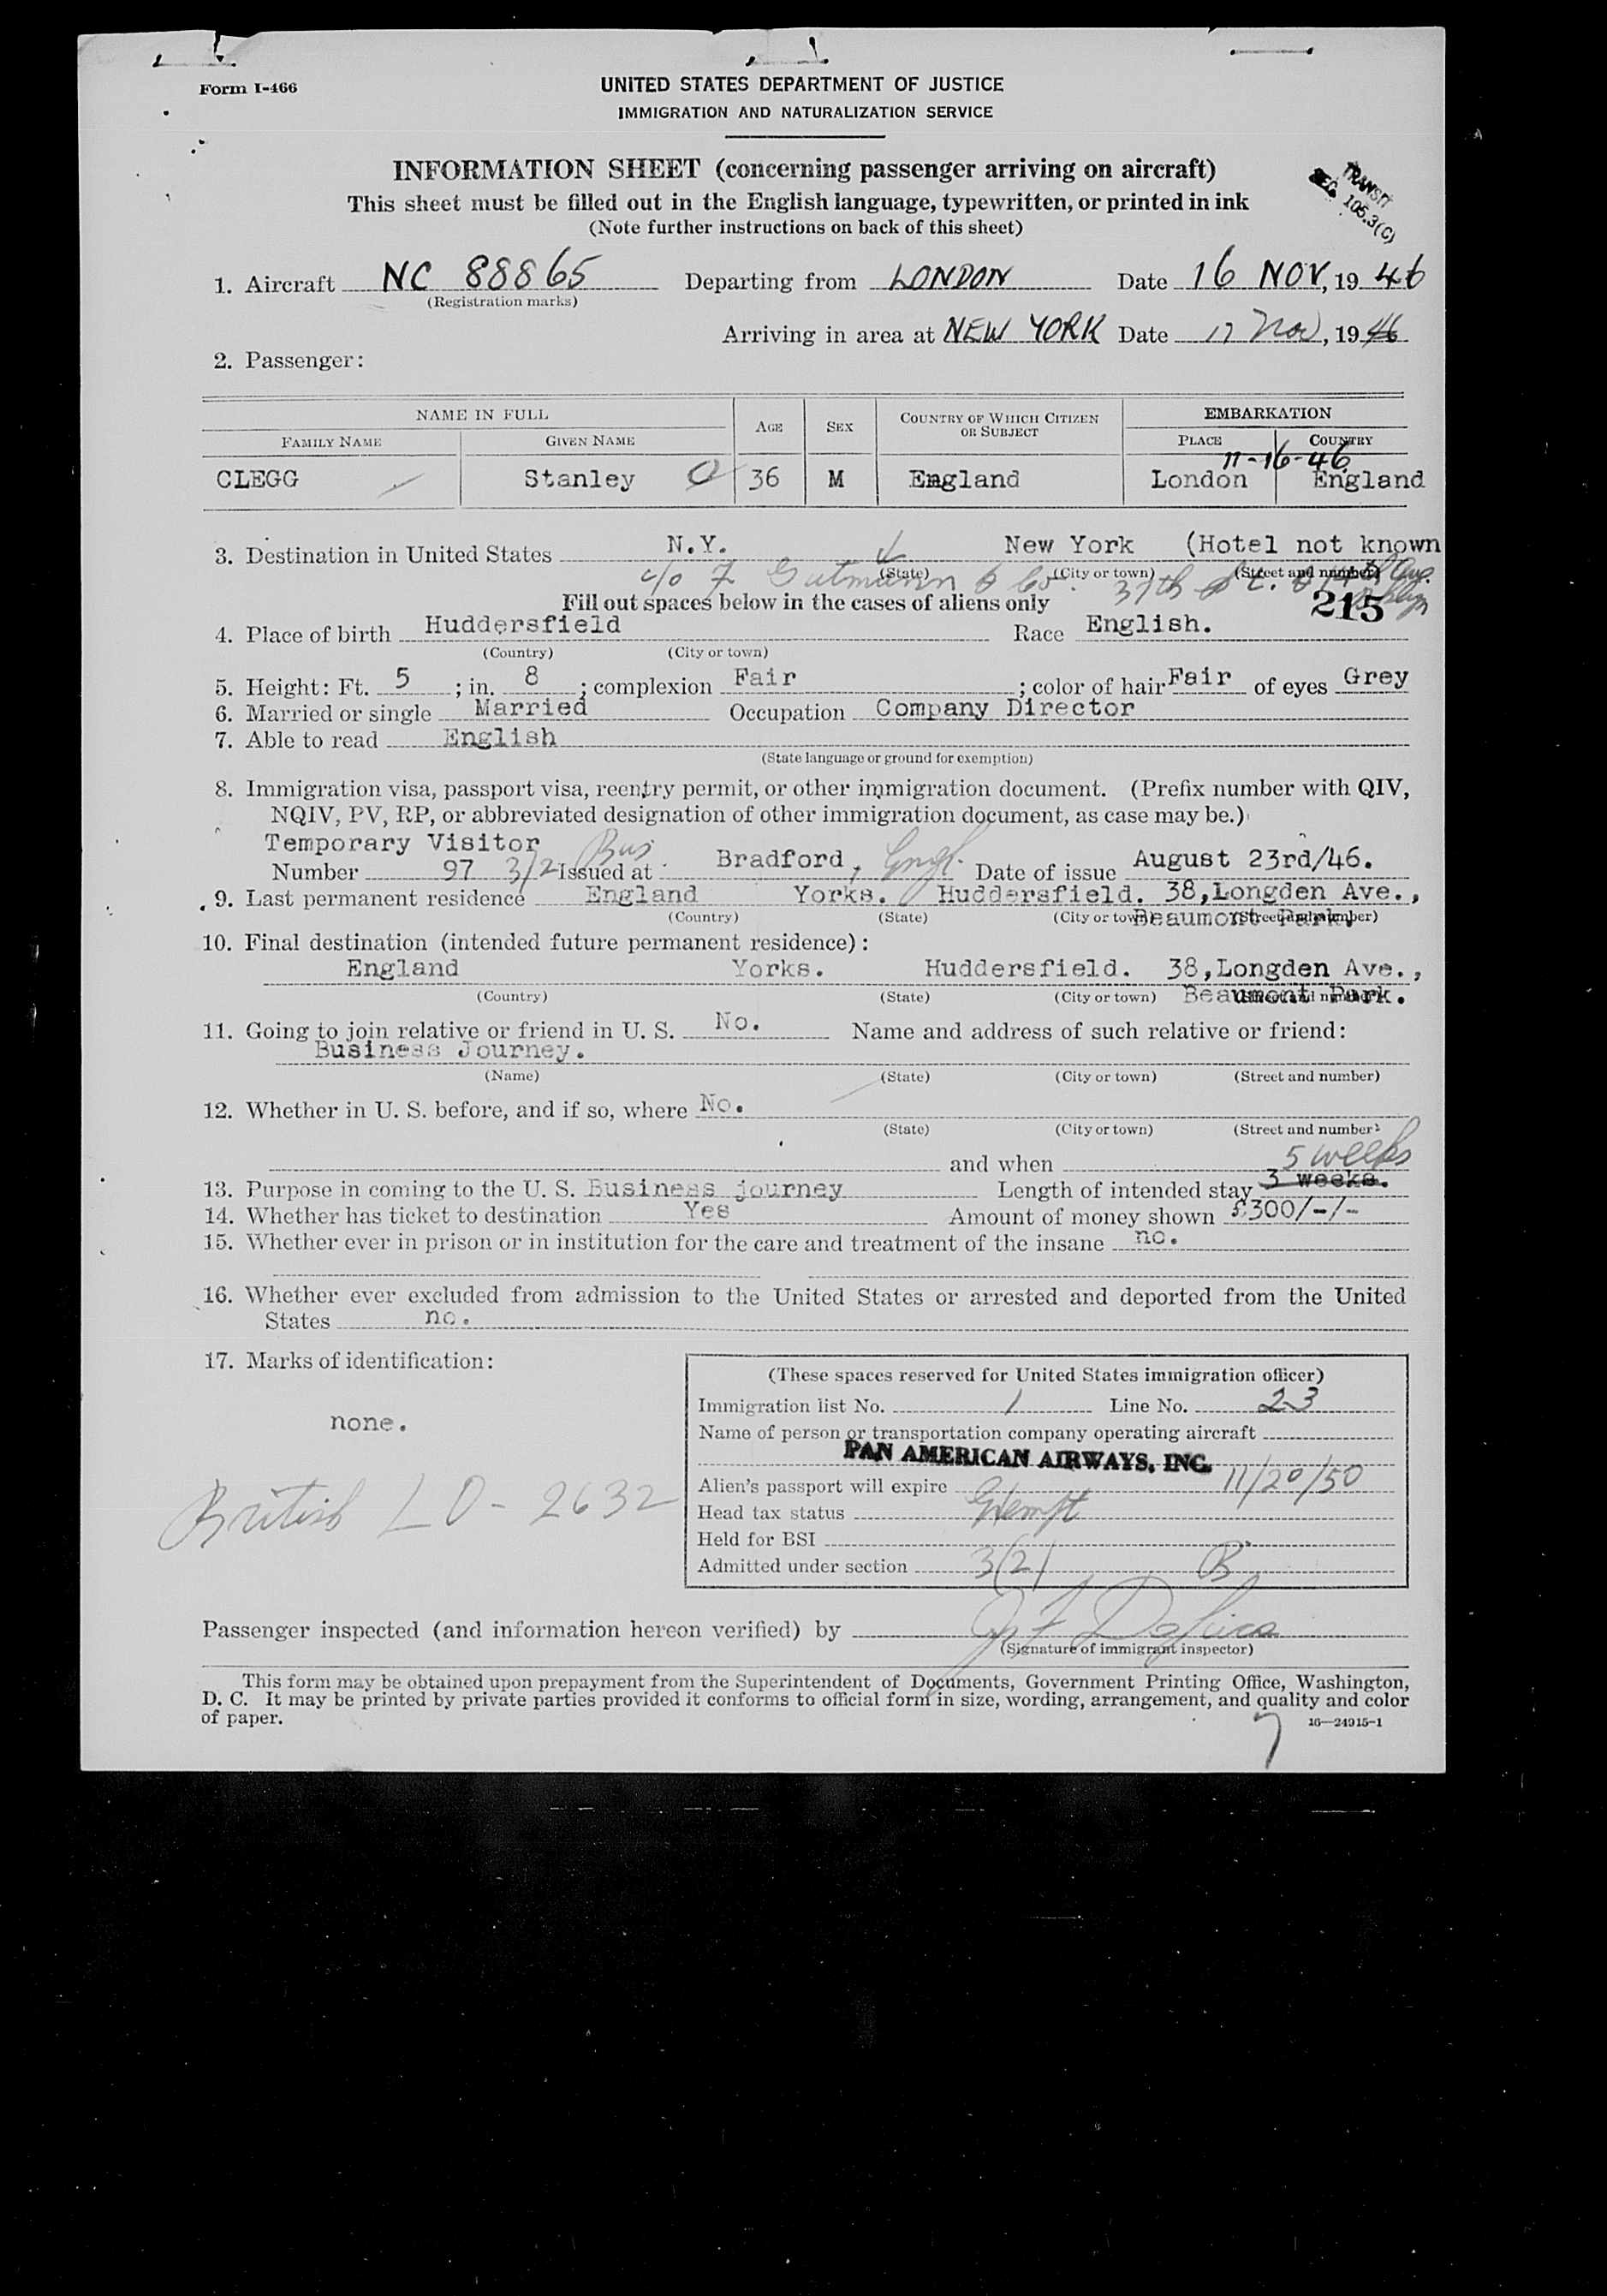 Form I-466
UNITED STATES DEPARTMENT OF JUSTICE
IMMIGRATION AND NATURALIZATION SERVICE
INFORMATION SHEET (concerning passenger arriving on aircraft)
This sheet must be filled out in the English language, typewritten, or printed in ink
(Note further instructions on back of this sheet)
TRANSIT
SEC. 105.3(C)
1. Aircraft NC 88865 Departing from LONDON Date 16 NOV, 1946
(Registration marks)
Arriving in area at NEW YORK Date 17 Nov, 1946
2. Passenger:
NAME IN FULL AGE SEX COUNTRY OF WHICH CITIZEN OR SUBJECT EMBARKATION
FAMILY NAME GIVEN NAME PLACE COUNTRY
11-16-46
CLEGG Stanley 36 M England London England
3. Destination in United States N.Y. New York (Hotel not known
(State) (City or town) (Street and number)
c/o F Gutmann & Co. 37th St. &
Fill out spaces below in the cases of aliens only 215
4. Place of birth Huddersfield Race English.
(Country) (City or town)
5. Height: Ft. 5; in. 8; complexion Fair; color of hair Fair of eyes Grey
6. Married or single Married Occupation Company Director
7. Able to read English
(State language or ground for exemption)
8. Immigration visa, passport visa, reentry permit, or other immigration document. (Prefix number with QIV,
NQIV, PV, RP, or abbreviated designation of other immigration document, as case may be.)
Temporary Visitor Bus
Number 97 3/2 Issued at Bradford, Engl. Date of issue August 23rd/46.
9. Last permanent residence England Yorks. Huddersfield. 38,Longden Ave.,
(Country) (State) (City or town) (Street and number)
Beaumont Park.
10. Final destination (intended future permanent residence):
England Yorks. Huddersfield. 38,Longden Ave.,
(Country) (State) (City or town) (Street and number)
Beaumont Park.
11. Going to join relative or friend in U. S. No. Name and address of such relative or friend:
Business Journey.
(Name) (State) (City or town) (Street and number)
12. Whether in U. S. before, and if so, where No.
(State) (City or town) (Street and number)
and when 5 weeks
13. Purpose in coming to the U. S. Business journey Length of intended stay 3 weeks.
14. Whether has ticket to destination Yes Amount of money shown £300/-/-
15. Whether ever in prison or in institution for the care and treatment of the insane no.
16. Whether ever excluded from admission to the United States or arrested and deported from the United
States no.
17. Marks of identification:
none.
British LO-2632
(These spaces reserved for United States immigration officer)
Immigration list No. 1 Line No. 23
Name of person or transportation company operating aircraft
PAN AMERICAN AIRWAYS, INC.
Alien's passport will expire 11/20/50
Head tax status Exempt
Held for BSI
Admitted under section 3(2) B
Passenger inspected (and information hereon verified) by
(Signature of immigrant inspector)
This form may be obtained upon prepayment from the Superintendent of Documents, Government Printing Office, Washington,
D. C. It may be printed by private parties provided it conforms to official form in size, wording, arrangement, and quality and color
of paper.
16—24915-1
7